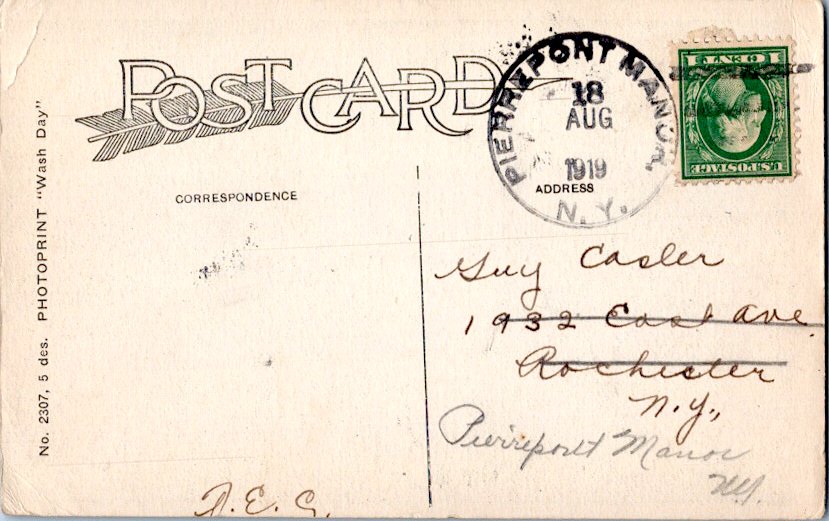 POST CARD
CORRESPONDENCE
No. 2307, 5 des. PHOTOPRINT "Wash Day"
PIERREPONT MANOR,
18
AUG
1919
N. Y.
1 CENT 1
U.S. POSTAGE
ADDRESS
Guy Casler
1932 East Ave
Rochester
N.Y.,
Pierrepont Manor
NY.